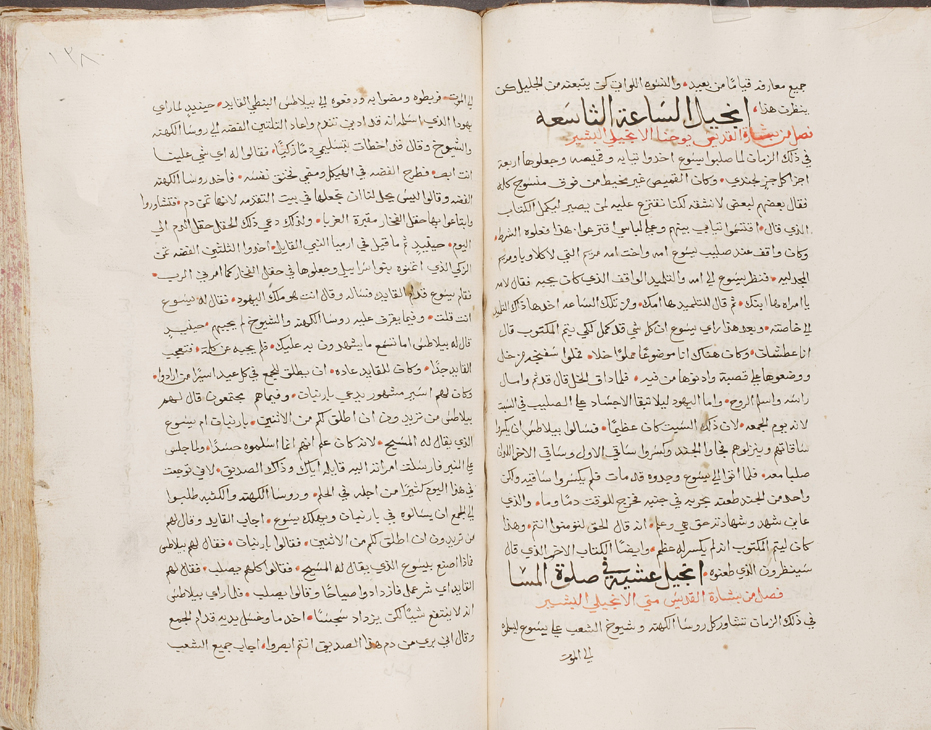 جميع معارفه قيامًا من بعيد • والنسوه اللواتي كن يتبعنه من الجليل كن
ينظرن هذا •
انجيل الساعة التاسعه
فصل من بشارة القديس يوحنا الانجيلي البشير
في ذلك الزمان لما صلبوا يسوع اخدوا تيابه وقميصه وجعلوها اربعة
اجزا كل جز لجندي • وكان القميص غير مخيط من فوق منسوج كله
فقال بعضهم لبعض لا نشقه لكنا نقترع عليه لمن يصير ليكمل الكتاب
الذي قال • اقتسموا تيابي بينهم وعلى لباسي اقترعوا • هذا فعلوه الشرط •
وكان واقف عند صليب يسوع امه واخت امه مريم التي لاكلاوبا ومريم
المجدليه • فنظر يسوع الى امه والتلميد الواقف الذي كان يحبه فقال لامه
يا امراه ها ابنك • ثم قال للتلميد ها امك • ومن تلك الساعه اخدها ذلك التلميد
الى خاصته • وبعد هذا راي يسوع ان كل شي قد كمل لكي يتم المكتوب قال
انا عطشان • وكان هناك انا موضوعًا مملوًا خلا • فملوا سفنجه من خل
ووضعوها على قصبة وادنوها من فيه • فلما داق الخل قال قد تم وامال
راسه واسلم الروح • واما اليهود ليلا تبقا الاجساد على الصليب في السبت
لانه يوم الجمعه • لان ذلك السبت كان عظيمًا • فسالوا بيلاطس ان يكسروا
ساقاتهم وينزلوهم فجاوا الجند وكسروا ساقي الاول وساقي الاخر اللذان
صلبا معه • فلما اتوا الى يسوع وجدوه قد مات فلم يكسروا ساقيه ولكن
واحد من الجند طعنه بحربه في جنبه فخرج للوقت دمًا وما • والذي
عاين شهد وشهادته حق هي وعلم • انه قال الحق لتومنوا انتم • وهذا
كان ليتم المكتوب انه لم يكسر له عظم • وايضًا الكتاب الاخر الذي قال
سينظرون الذي طعنوه •
انجيل عشية في صلوة المسا
فصل من بشارة القديس متي الانجيلي البشير
في ذلك الزمان تشاور كل روسا الكهنه وشيوخ الشعب على يسوع ليسلموه
الى الموت
١٣٨
الى الموت • فربطوه ومضوا به ودفعوه الى بيلاطس البنطي القايد • حينيدٍ لما راي
يهودا الذي اسلمه انه قد ادين تندم واعاد التلتين الفضه الى روسا الكهنه
والشيوخ وقال قد اخطات بتسليمي دمًا زكيًا • فقالوا له اي شي علينا
انت ابصر • فطرح الفضه في الهيكل ومضي فخنق نفسه • فاخد روسا الكهنه
الفضه وقالوا ليس يحل لنا ان نجعلها في بيت التقدمه لانها تمن دم • فتشاوروا
وابتاعوا بها حقل الفخار مقبرة الغربا • ولذلك دعي ذلك الحقل حقل الدم الي
اليوم • حينيدٍ تم ما قيل في ارميا النبي القايل • اخدوا الثلتين الفضه تمن
الزكي الذي اتمنوه بنوا اسراييل وجعلوها في حقل الفخار كما امرني الرب •
فقام يسوع قدام القايد فساله وقال انت هو ملك اليهود • فقال له يسوع
انت قلت • وفيما يقرف عليه روسا الكهنه والشيوخ لم يجيبهم • حينيدٍ
قال له بيلاطس اما تسمع ما يشهدون به عليك • فلم يجيبه عن كلمة • فتعجب
القايد جدًا • وكان للقايد عاده • ان يطلق للجمع في كل عيد اسيرًا من ارادوا •
وكان لهم اسير مشهور يدعي بارنبان • وفيما هم مجتمعون قال لهم
بيلاطس من تريدون ان اطلق لكم من الاتنين • بارنبان ام يسوع
الذي يقال له المسيح • لانه كان علم انهم انما اسلموه حسدًا • ولما جلس
على المنبر فارسلت امراته اليه قايله اياك وذلك الصديق • لاني توجعت
في هذا اليوم كتيرًا من اجله في الحلم • وروسا الكهنه والكتبه طلبوا
الى الجمع ان يسالوه في بارنبان ويهلك يسوع • اجاب القايد وقال لهم
من تريدون ان اطلق لكم من الاتنين • فقالوا بارنبان • فقال لهم بيلاطس
فماذا اصنع بيسوع الذي يقال له المسيح • فقالوا كلهم يصلب • فقال لهم
القايد اي شر عمل فازدادوا صياحًا وقالوا يصلب • فلما راي بيلاطس
انه لا ينتفع شييًا لكن يزداد سجسًا • اخد ما وغسل يديه قدام الجمع
وقال انى بري من دم هذا الصديق انتم ابصروا • اجاب جميع الشعب